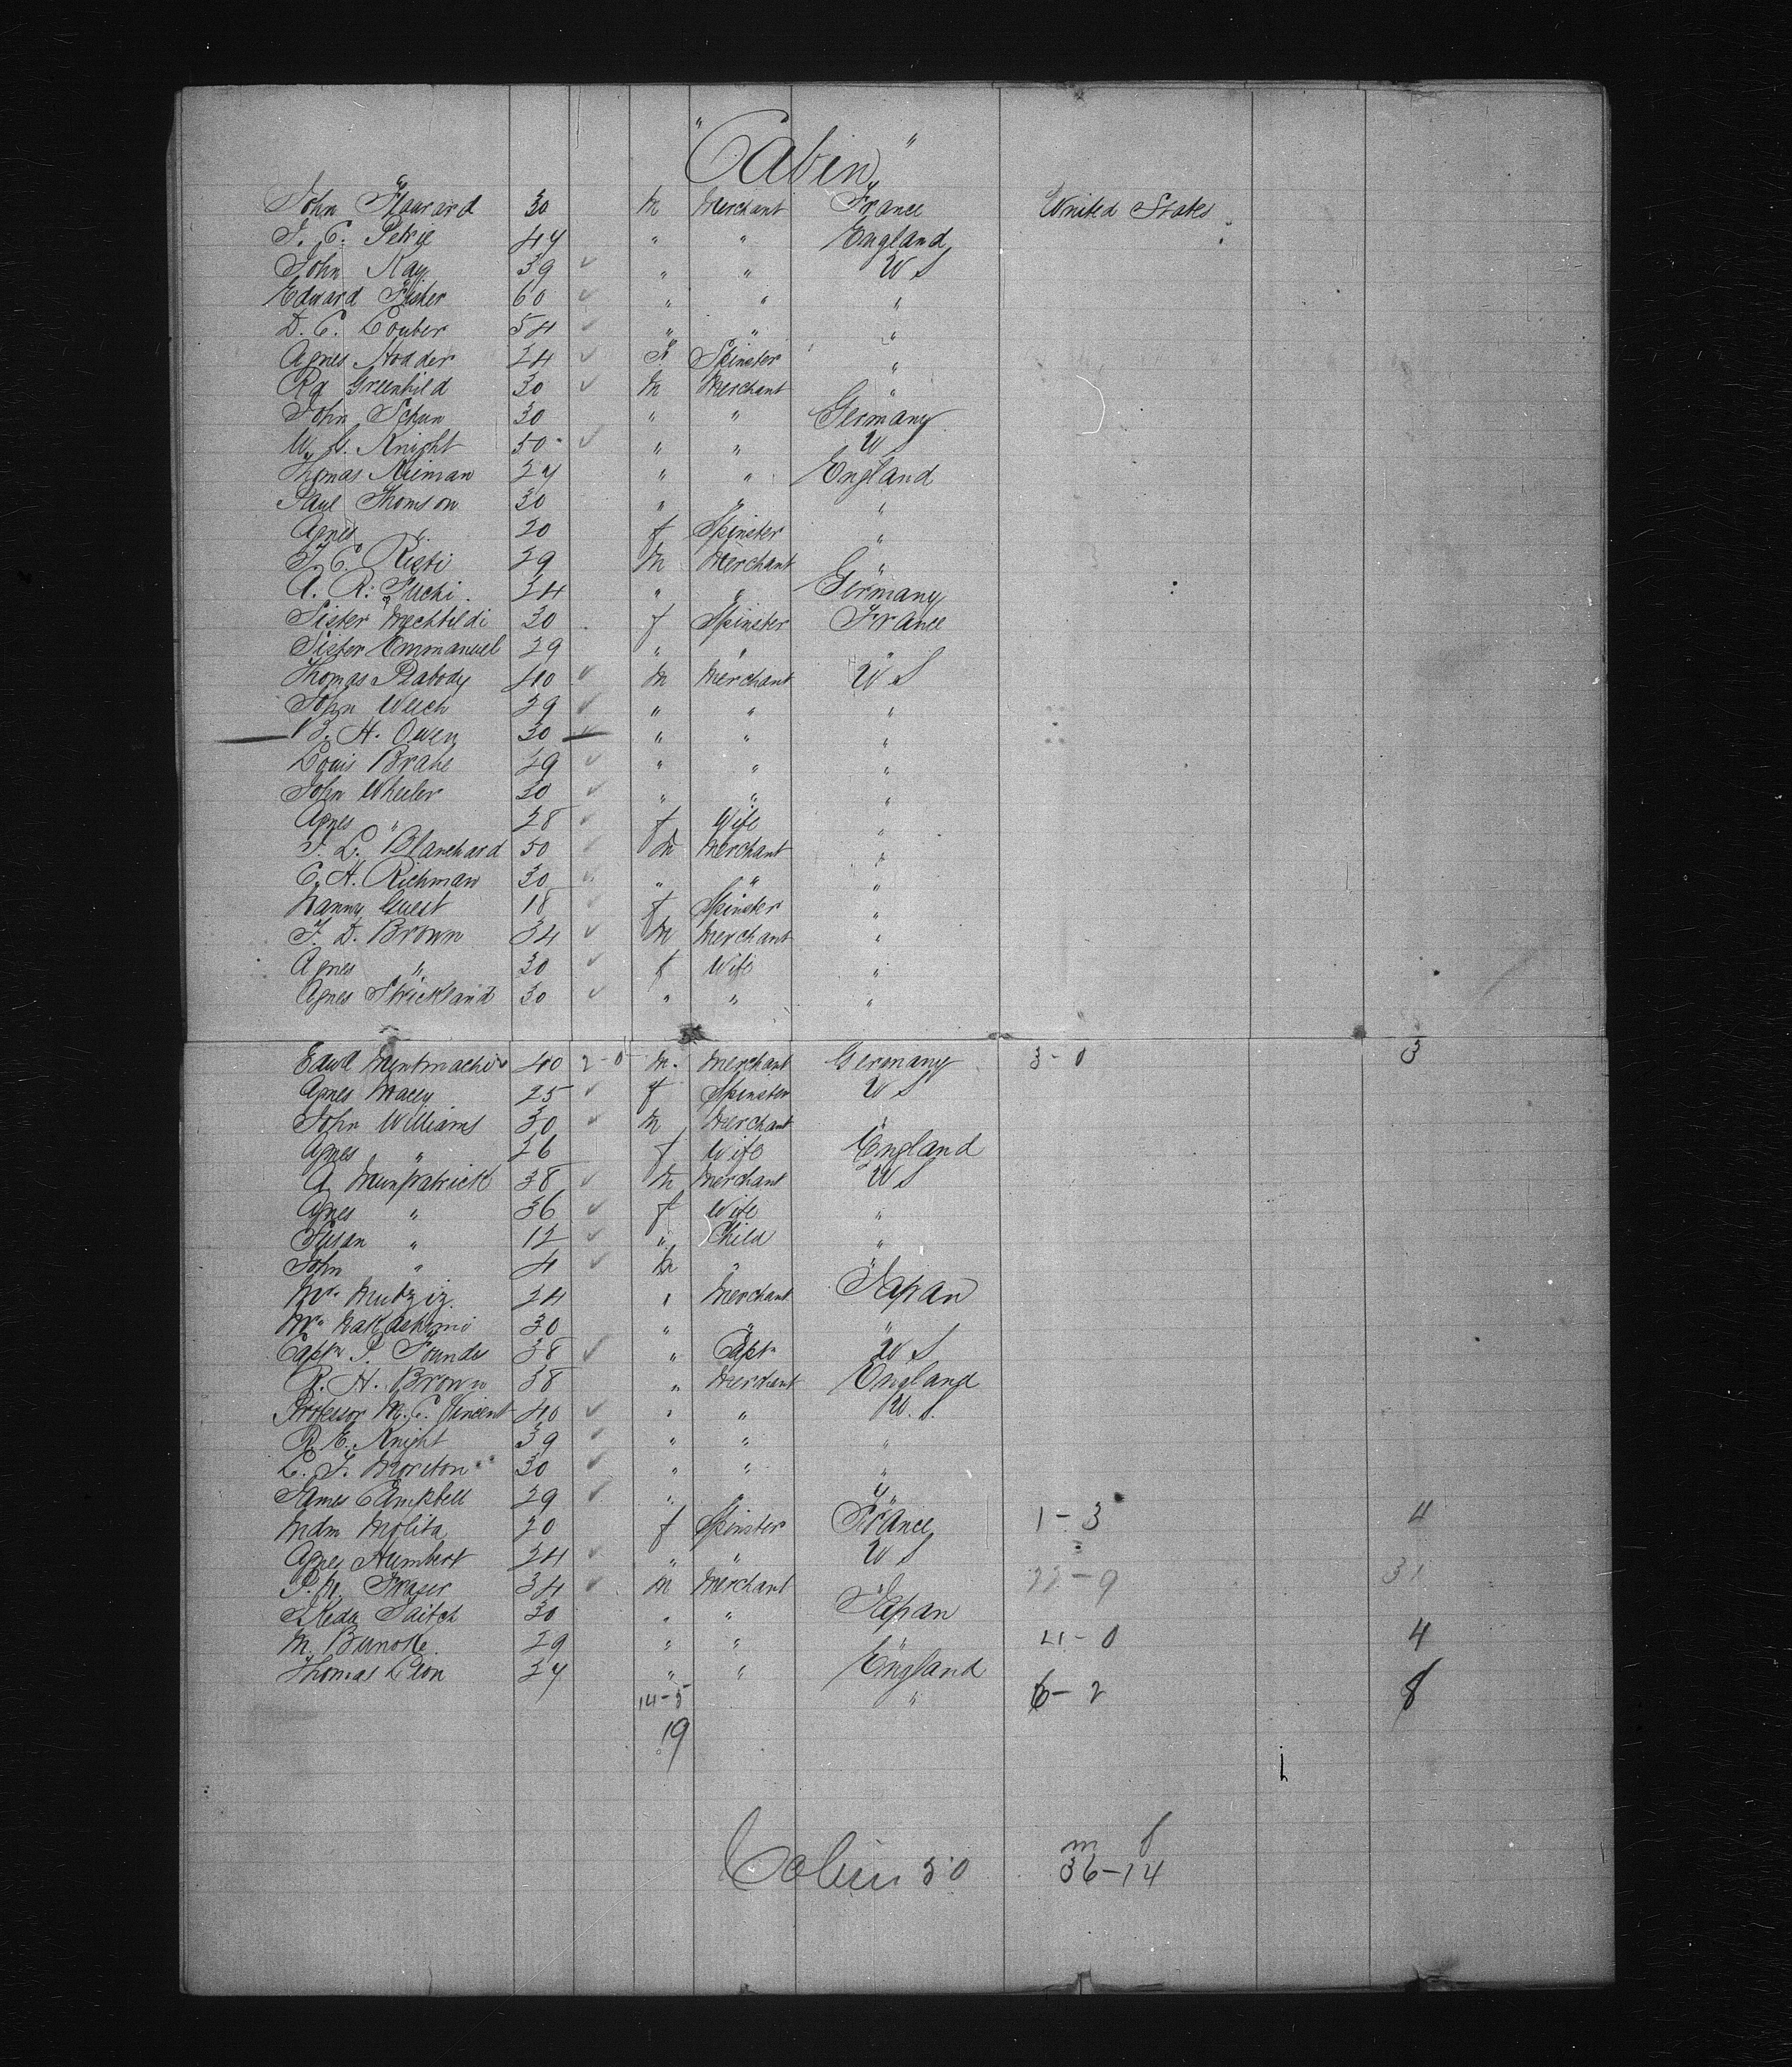 "Cabin"
John Flourard 30 M Merchant France United States
J. C. Petrie 44 " " England
John Kay 39 ✓ " " U S
Edward Fister 60 ✓ " " "
D. C. Couber 54 ✓ " " "
Agnes Hodder 24 ✓ F. Spinster "
Rd Greenhild 30 ✓ M Merchant "
John Schun 30 " " Germany
W. H. Knight 50 ✓ " " U S
Thomas Nieman 24 " " England
Paul Thomson 30 " " "
Agnes " 20 f Spinster "
J. C. Risti 29 M Merchant "
A. R. Suchi 34 " " Germany
Sister Mechtildi 30 f Spinster France
Sister Emmanuel 29 " " "
Thomas Peabody 40 ✓ M Merchant U S
John Welch 29 ✓ " " "
B. H. Owen 30 " " "
Louis Brahe 49 ✓ " " "
John Wheeler 30 ✓ " " "
Agnes " 28 ✓ f Wife "
J. L. Blanchard 50 ✓ M Merchant "
C. H. Richman 30 " " "
Nanny Guest 18 ✓ f Spinster "
F. D. Brown 34 ✓ M Merchant "
Agnes " 30 ✓ f Wife "
Agnes Strickland 30 ✓ " " "
Edwd 40 2-0 M. Merchant Germany 3-0 3
Agnes Macey 25 ✓ f Spinster U S
John Williams 30 ✓ M Merchant "
Agnes " 26 f Wife England
A Munpatrick 38 ✓ M Merchant U S
Agnes " 36 ✓ f Wife "
Susan " 12 ✓ " Child "
John " 4 ✓ M " "
Mr. Mutziz 24 " Merchant Japan
Mr. Nakashimi 30 " " "
Captn P. Founds 38 ✓ " Captn U S
R. H. Brown 38 " Merchant England
Professor M. C. Vincent 40 ✓ " " U. S.
R. E. Knight 39 ✓ " " "
L. F. Moreton 30 ✓ " " "
James Campbell 29 ✓ " " "
Mdm Molita 20 f Spinster France 1-3 4
Agnes Humbert 24 ✓ " " U S
P. M. Fraser 34 ✓ M Merchant " 22-9 31
Ikeda Saitch 30 " " Japan
M. 29 " " " 4-0 4
Thomas Leon 34 " " England
14-5 " 6-2 8
19
m f
Cabin 50 36-14